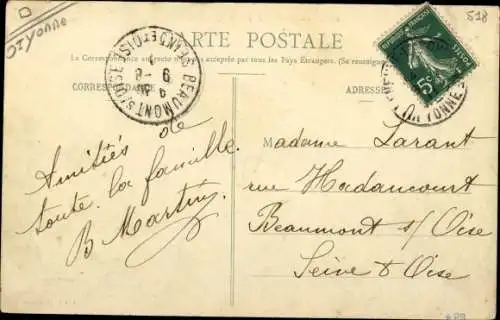 D
OTYONNE
518
CARTE POSTALE
La Correspondance au recto n'est pas acceptée par tous les Pays Étrangers. (Se renseigner
CORRESPONDANCE
ADRESSE
BEAUMONT S/OISE
SEINE ET OISE
5c
YONNE
Amitiés de
toute la famille.
B Martin
Madame Larant
rue Hadancourt
Beaumont s/ Oise
Seine & Oise